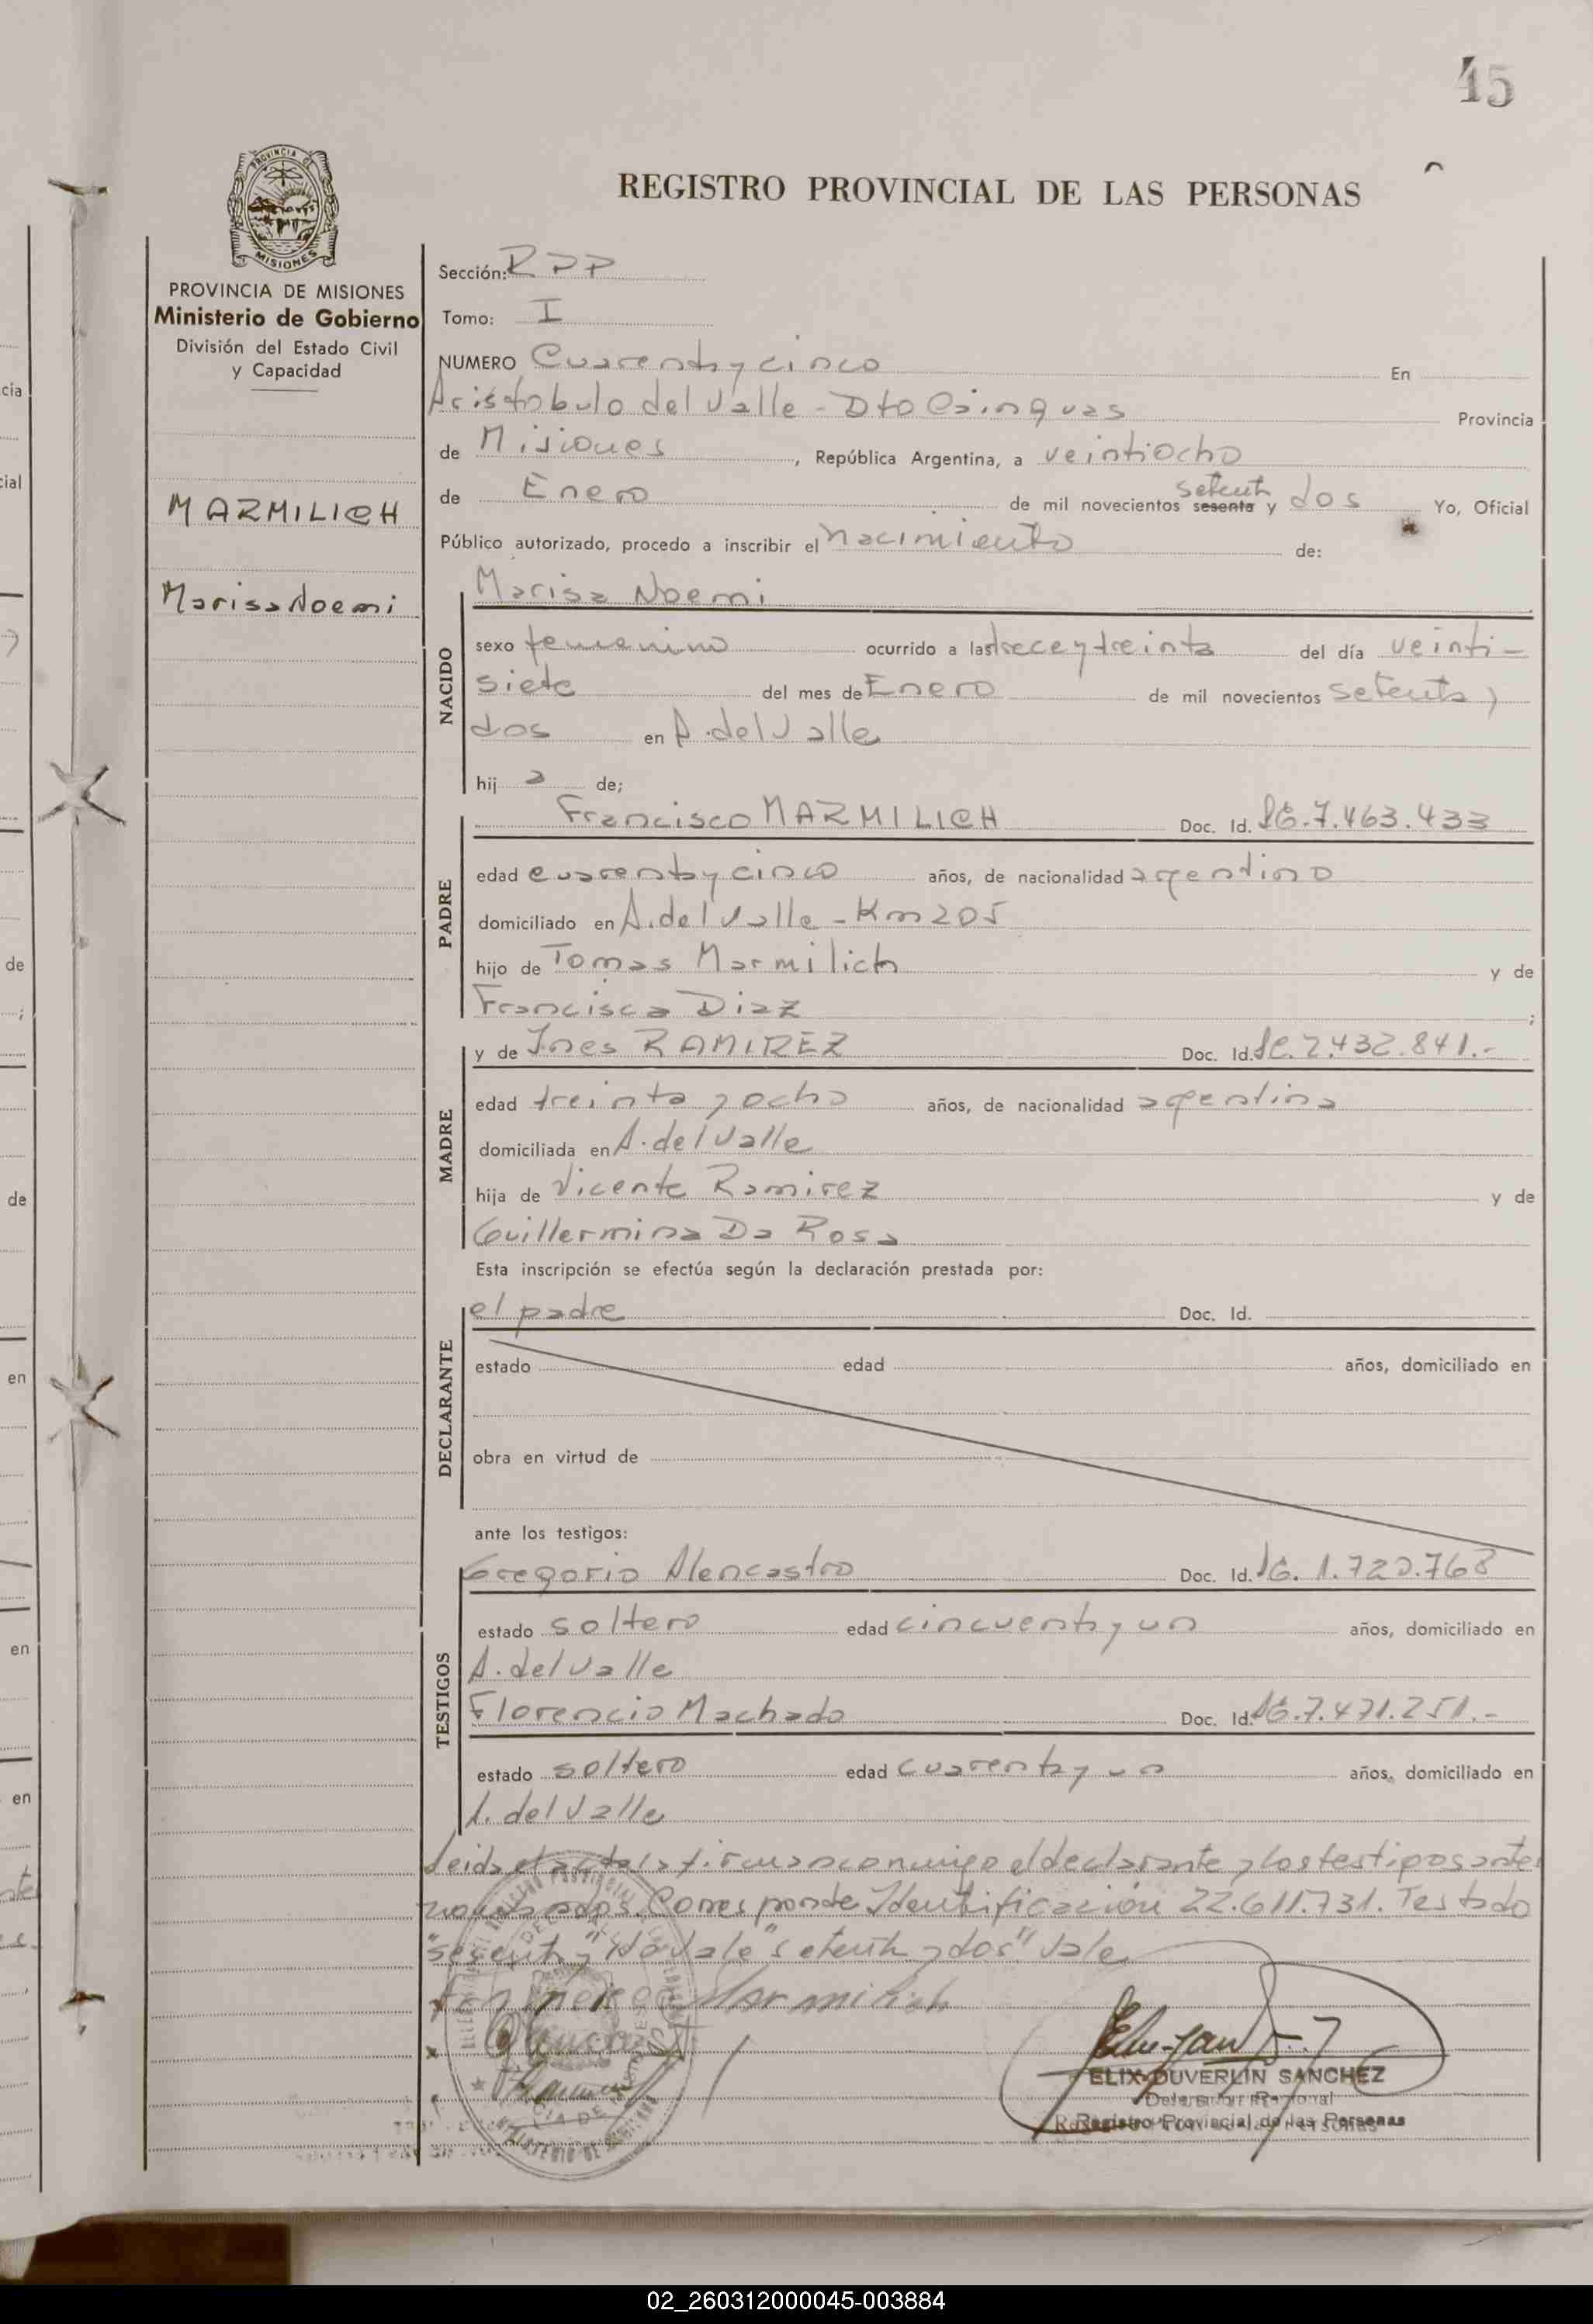 45
REGISTRO PROVINCIAL DE LAS PERSONAS
PROVINCIA DE MISIONES
Ministerio de Gobierno
División del Estado Civil
y Capacidad
MARMILICH
Marisa Noemi
Sección: RPP
Tomo: I
NUMERO Cuarenta y cinco En
Aristobulo del Valle - Dto Cainguas Provincia
de Misiones, República Argentina, a veintiocho
de Enero de mil novecientos sesenta setenta y dos Yo, Oficial
Público autorizado, procedo a inscribir el nacimiento de:
NACIDO
Marisa Noemi
sexo femenino ocurrido a las trece y treinta del día veinti-
siete del mes de Enero de mil novecientos setenta y
dos en A. del Valle
hij a de;
PADRE
Francisco MARMILICH Doc. Id. 7.463.433
edad cuarenta y cinco años, de nacionalidad argentino
domiciliado en A. del Valle - Km 205
hijo de Tomas Marmilich y de
Francisca Diaz ;
MADRE
y de Ines RAMIREZ Doc. Id. 2.432.841.-
edad treinta y ocho años, de nacionalidad argentina
domiciliada en A. del Valle
hija de Vicente Ramirez y de
Guillermina Da Rosa
Esta inscripción se efectúa según la declaración prestada por:
DECLARANTE
el padre Doc. Id.
estado edad años, domiciliado en
obra en virtud de
ante los testigos:
TESTIGOS
Gregorio Alencastro Doc. Id. 1.720.768
estado soltero edad cincuenta y un años, domiciliado en
A. del Valle
Florencio Machado Doc. Id. 7.471.251.-
estado soltero edad cuarenta y un años, domiciliado en
A. del Valle
Leida el acta la firman conmigo el declarante y los testigos antes
nombrados. Corresponde Identificación 22.611.731. Testado
"sesenta y" No Vale "setenta y dos" Vale
Marmilich
ELIX DUVERLIN SANCHEZ
Delegado Regional
Registro Provincial de las Personas
02_260312000045-003884